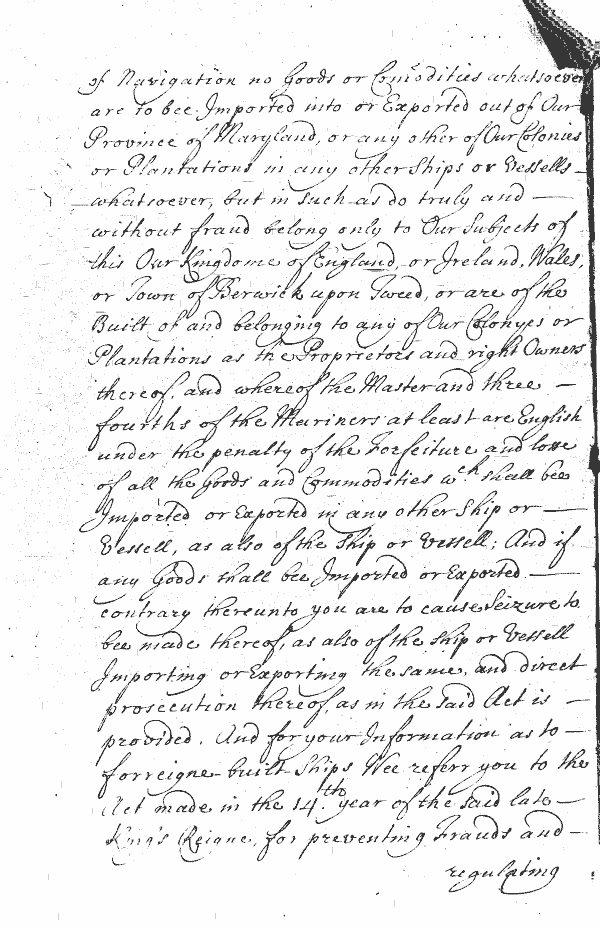 of Navigation no Goods or Com̃odities whatsoever
are to bee Imported into or Exported out of Our
Province of Maryland, or any other of Our Colonies
or Plantations in any other Ships or Vessells —
whatsoever, but in such as do truly and —
without fraud belong only to Our Subjects of
this Our Kingdome of England, or Ireland, Wales,
or Town of Berwick upon Tweed, or are of the
Built of and belonging to any of Our Colonyes or
Plantations as the Proprietors and right Owners
thereof, and whereof the Master and three —
fourths of the Mariners at least are English
under the penalty of the Forfeiture and losse
of all the Goods and Commodities wch shall bee
Imported or Exported in any other Ship or —
Vessell, as also of the Ship or Vessell; And if
any Goods shall bee Imported or Exported —
contrary thereunto you are to cause Seizure to
bee made thereof, as also of the Ship or Vessell
Importing or Exporting the same, and direct
prosecution thereof, as in the said Act is —
provided. And for your Information as to —
forreigne built Ships Wee referr you to the
Act made in the 14.th year of the said late —
King's Reigne, for preventing Frauds and —
regulating